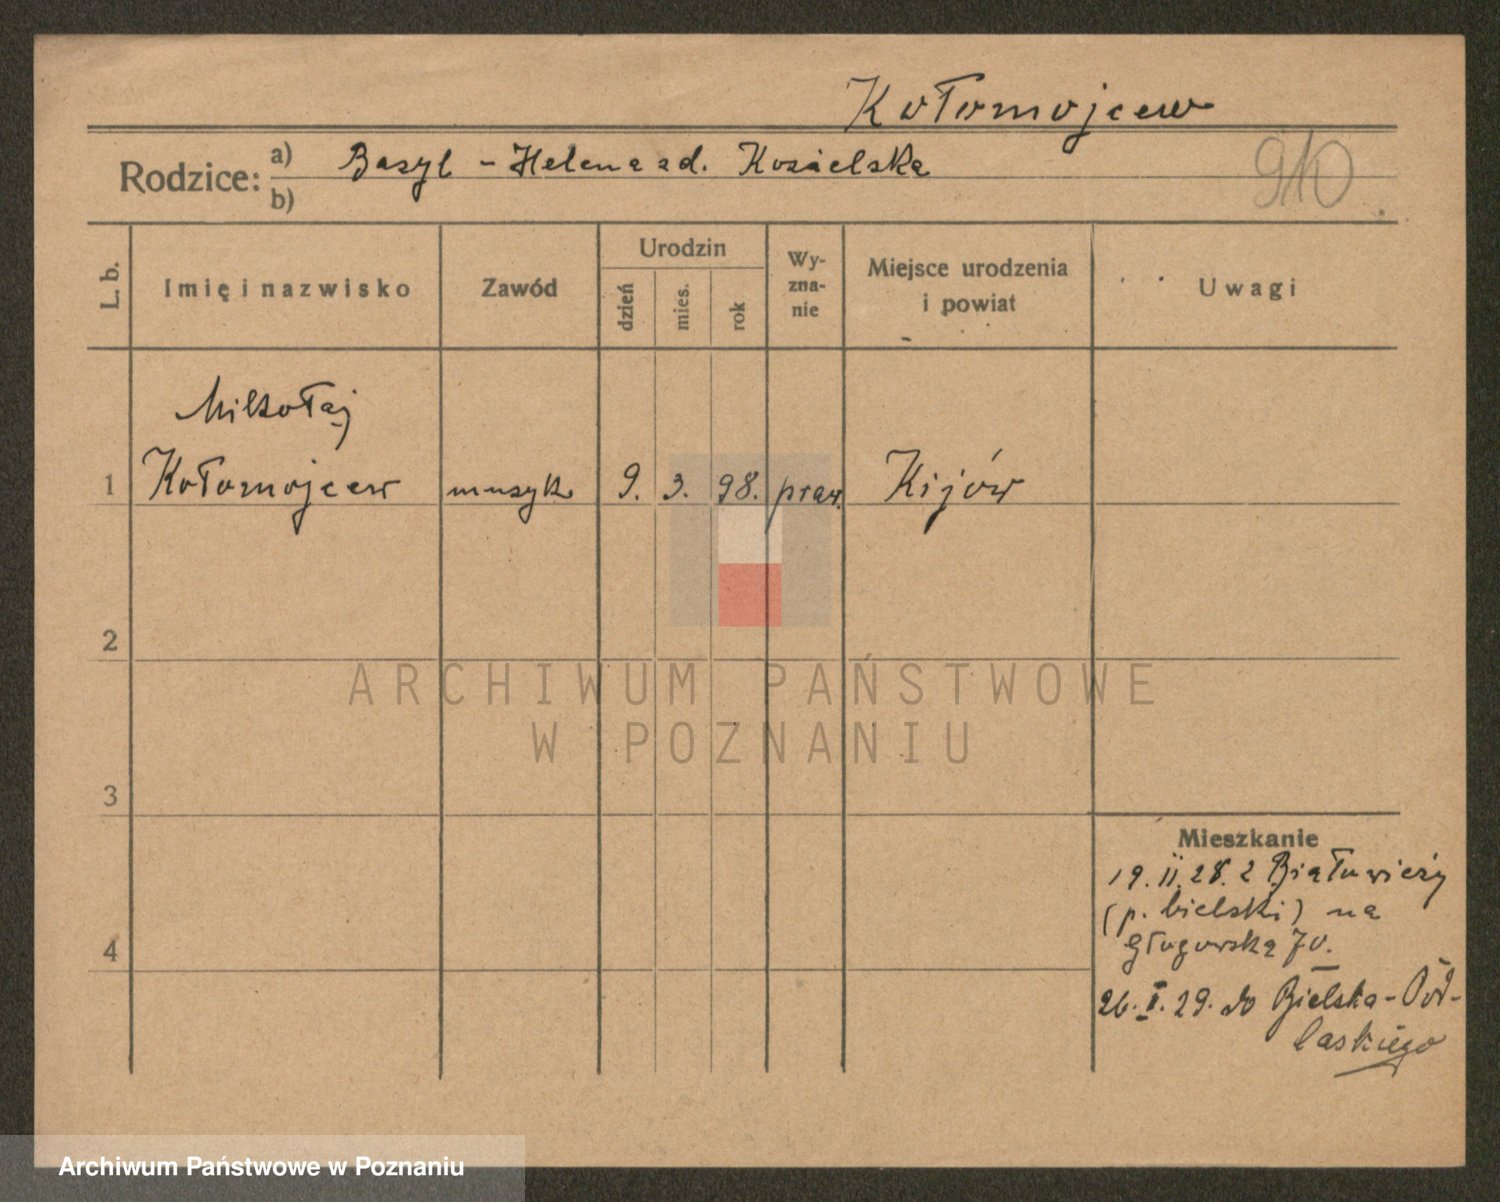 Kołomojcew
Rodzice: a) Bazyl - Helena zd. Kozielska
b)
910
L. b.
Imię i nazwisko
Zawód
Urodzin
dzień
mies.
rok
Wy-
zna-
nie
Miejsce urodzenia
i powiat
Uwagi
Mikołaj
1 Kołomojcew muzyk 9. 3. 98. praw. Kijów
2
ARCHIWUM PAŃSTWOWE
W POZNANIU
3
Mieszkanie
19.II.28. z Białowieży
(p. bielski) na
4 Głogowska 70.
26.I.29. do Bielska-Pod-
laskiego
Archiwum Państwowe w Poznaniu